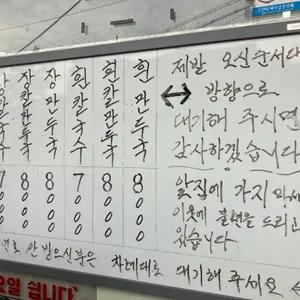 장칼국수 7000
장칼만두국 8000
장만두국 8000
흰칼국수 7000
흰칼만두국 8000
흰만두국 8000
제발 오신순서대
↔ 방향으로
대기해 주시면
감사하겠습니다
앞집에 가지 마세
이웃에 불편을 드리고
있습니다.
안 받으신분은 차례대로 대기해 주세요
요일 쉽니다